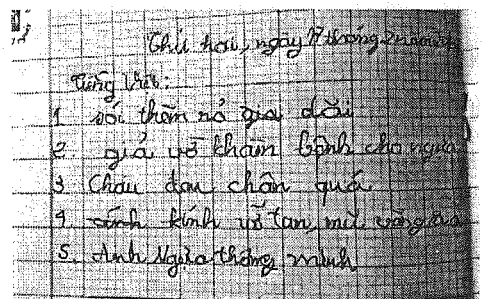 Thứ hai, ngày 17 tháng 2 năm
Tiếng Việt:
1 sói thèm rỏ dãi
2. giả vờ khám bệnh cho ngựa
3 Cháu đau chân quá
4. kính vỡ tan, mũ văng
5. Anh Ngựa thông minh